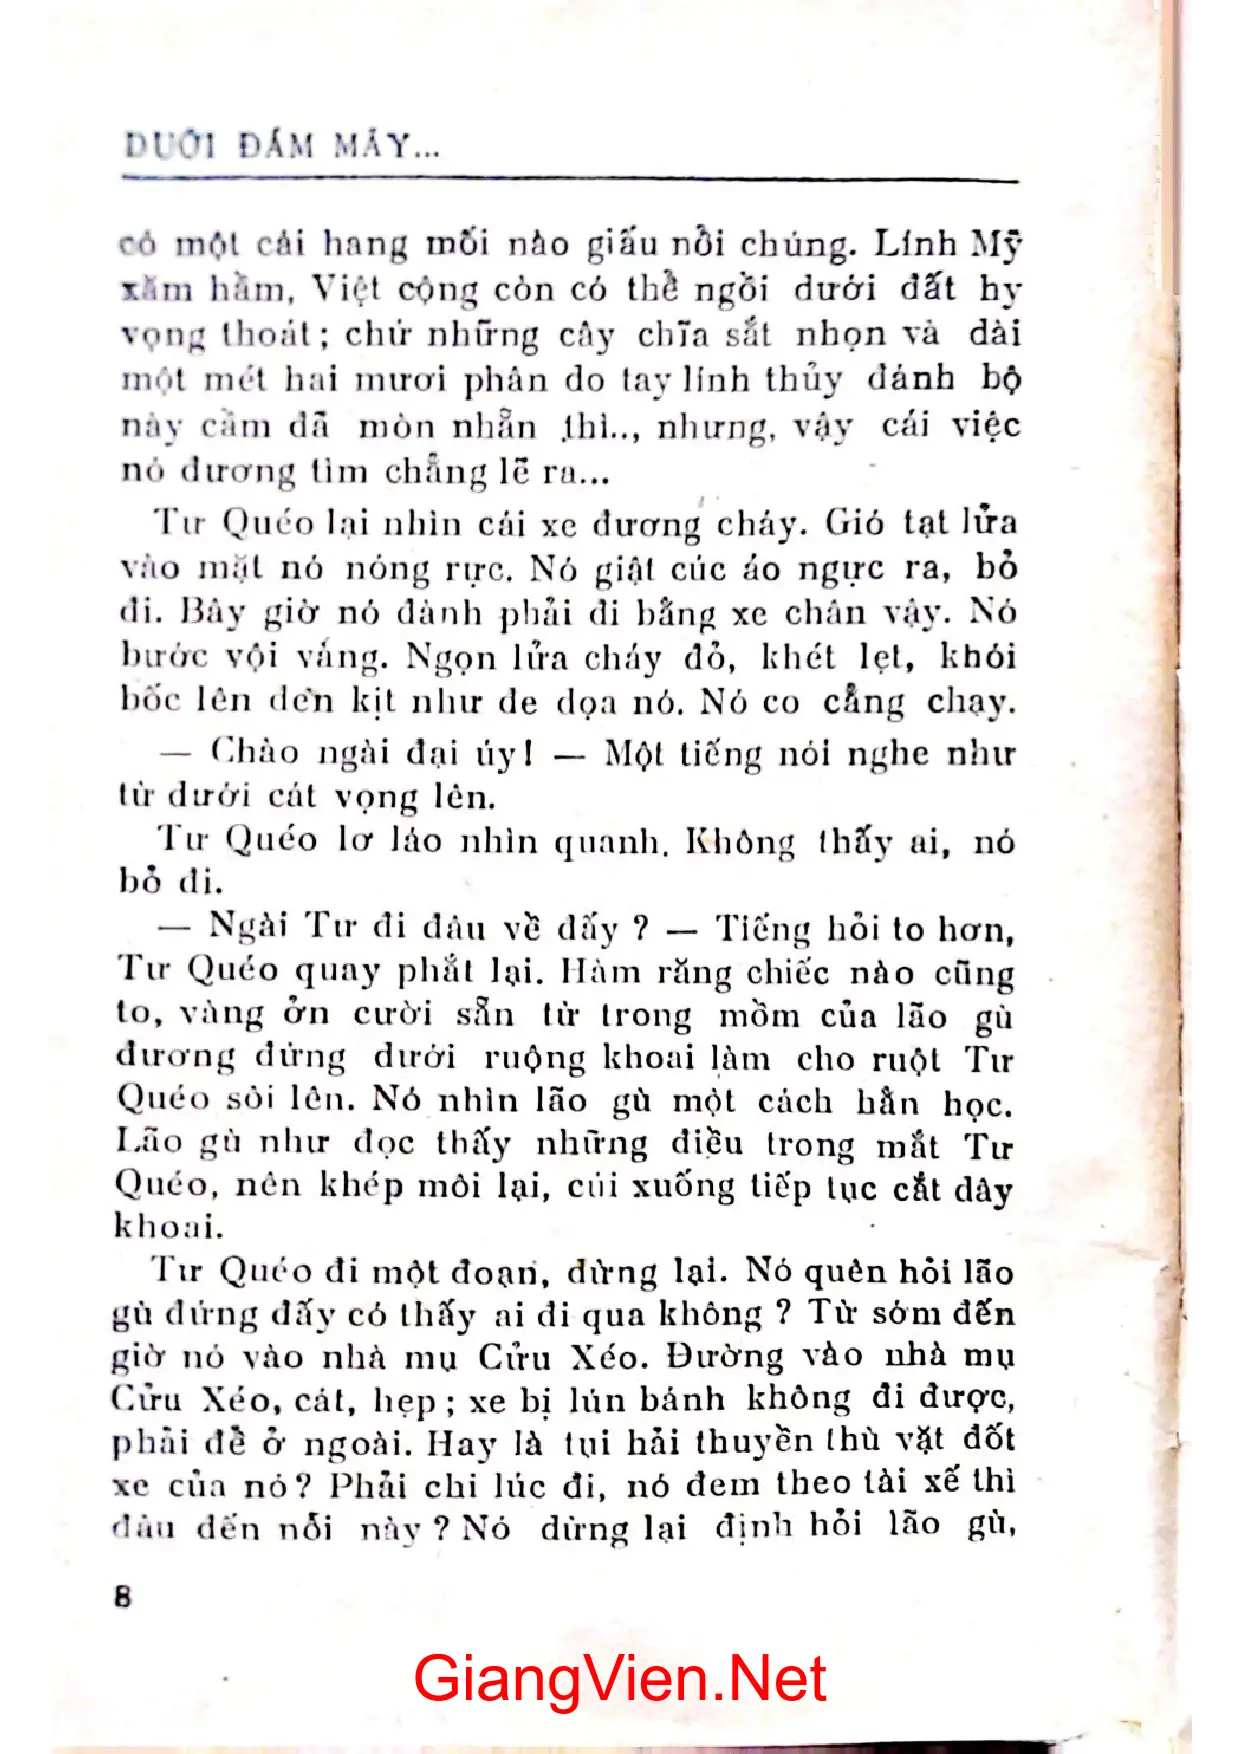 DƯỚI ĐÁM MÂY...
có một cái hang mối nào giấu nổi chúng. Lính Mỹ
xăm hầm, Việt cộng còn có thể ngồi dưới đất hy
vọng thoát ; chứ những cây chĩa sắt nhọn và dài
một mét hai mươi phân do tay lính thủy đánh bộ
này cầm đã mòn nhẵn thì.., nhưng, vậy cái việc
nó đương tìm chẳng lẽ ra...
Tư Quéo lại nhìn cái xe đương cháy. Gió tạt lửa
vào mặt nó nóng rực. Nó giật cúc áo ngực ra, bỏ
đi. Bây giờ nó đành phải đi bằng xe chân vậy. Nó
bước vội váng. Ngọn lửa cháy đỏ, khét lẹt, khói
bốc lên đen kịt như đe dọa nó. Nó co cẳng chạy.
— Chào ngài đại úy! — Một tiếng nói nghe như
từ dưới cát vọng lên.
Tư Quéo lơ láo nhìn quanh. Không thấy ai, nó
bỏ đi.
— Ngài Tư đi đâu về đấy ? — Tiếng hỏi to hơn,
Tư Quéo quay phắt lại. Hàm răng chiếc nào cũng
to, vàng ởn cười sẵn từ trong mồm của lão gù
đương đứng dưới ruộng khoai làm cho ruột Tư
Quéo sôi lên. Nó nhìn lão gù một cách hằn học.
Lão gù như đọc thấy những điều trong mắt Tư
Quéo, nên khép môi lại, cúi xuống tiếp tục cắt dây
khoai.
Tư Quéo đi một đoạn, dừng lại. Nó quên hỏi lão
gù đứng đấy có thấy ai đi qua không ? Từ sớm đến
giờ nó vào nhà mụ Cửu Xéo. Đường vào nhà mụ
Cửu Xéo, cát, hẹp ; xe bị lún bánh không đi được,
phải để ở ngoài. Hay là tụi hải thuyền thù vặt đốt
xe của nó? Phải chi lúc đi, nó đem theo tài xế thì
đâu đến nỗi này ? Nó dừng lại định hỏi lão gù,
8
GiangVien.Net